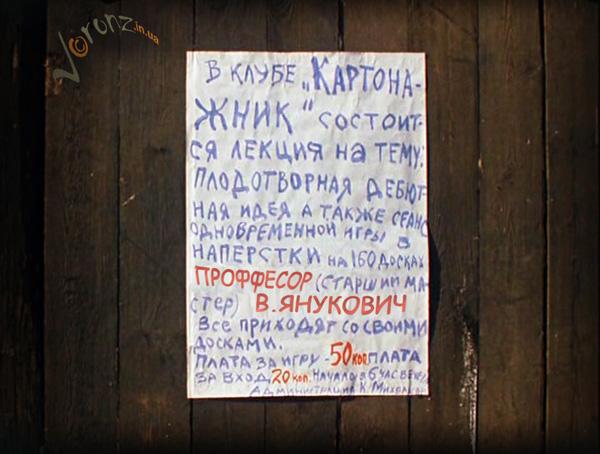 Voronz.in.ua
В КЛУБЕ „КАРТОНА-
ЖНИК" СОСТОИТ-
СЯ ЛЕКЦИЯ НА ТЕМУ:
ПЛОДОТВОРНАЯ ДЕБЮТ-
НАЯ ИДЕЯ А ТАКЖЕ СЕАНС
ОДНОВРЕМЕННОЙ ИГРЫ В
НАПЕРСТКИ НА 160 ДОСКАХ
ПРОФФЕСОР (СТАРШИЙ МА-
СТЕР) В.ЯНУКОВИЧ
ВСЕ ПРИХОДЯТ СО СВОИМИ
ДОСКАМИ.
ПЛАТА ЗА ИГРУ - 50 коп ПЛАТА
ЗА ВХОД 20 коп. НАЧАЛО В 6 ЧАС ВЕЧЕРА
АДМИНИСТРАЦИЯ К.